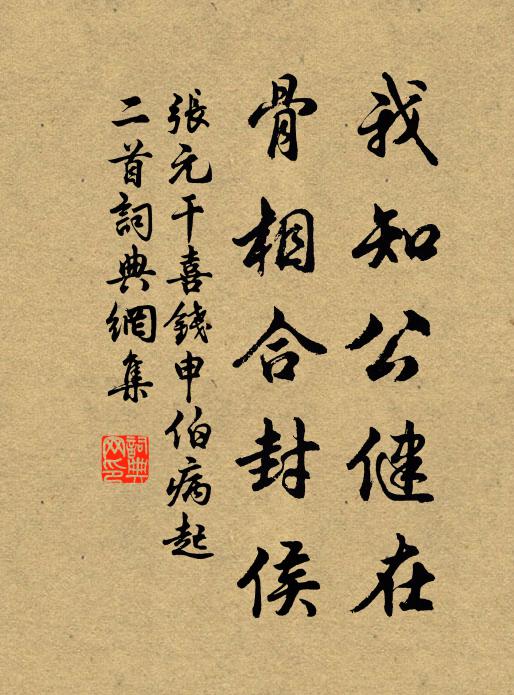 我知公健在
骨相合封侯
張元干喜錢申伯病起
二首詞典網集
詞典
网印